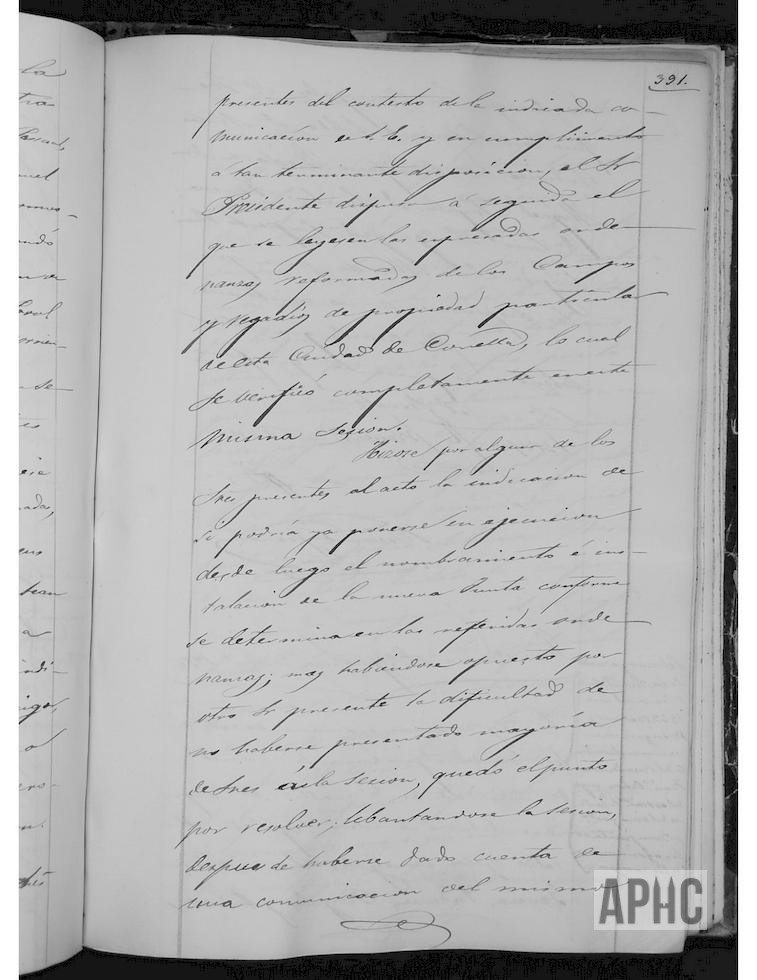 391.
presentes del contesto de la indicada co-
municacion y en cumplimiento
á tan terminante disposicion, el Sr
Presidente dispuso á seguida el
que se leyesen las espresadas orde-
nanzas reformadas de los Campos
y regadios de propiedad particular
de esta Ciudad de Corella, lo cual
se verificó completamente en este
misma Sesion.
Hizose por alguno de los
Sres presentes al acto la indicacion de
si podria ya ponerse en ejecucion
desde luego el nombramiento é ins-
talacion de la nueva Junta conforme
se determina en las referidas orde-
nanzas; mas habiendose opuesto por
otro Sr presente la dificultad de
no haberse presentado mayoria
de Sres á la sesion, quedó el punto
por resolver, lebantandose la sesion,
despues de haberse dado cuenta de
una comunicacion del mismo
APHC